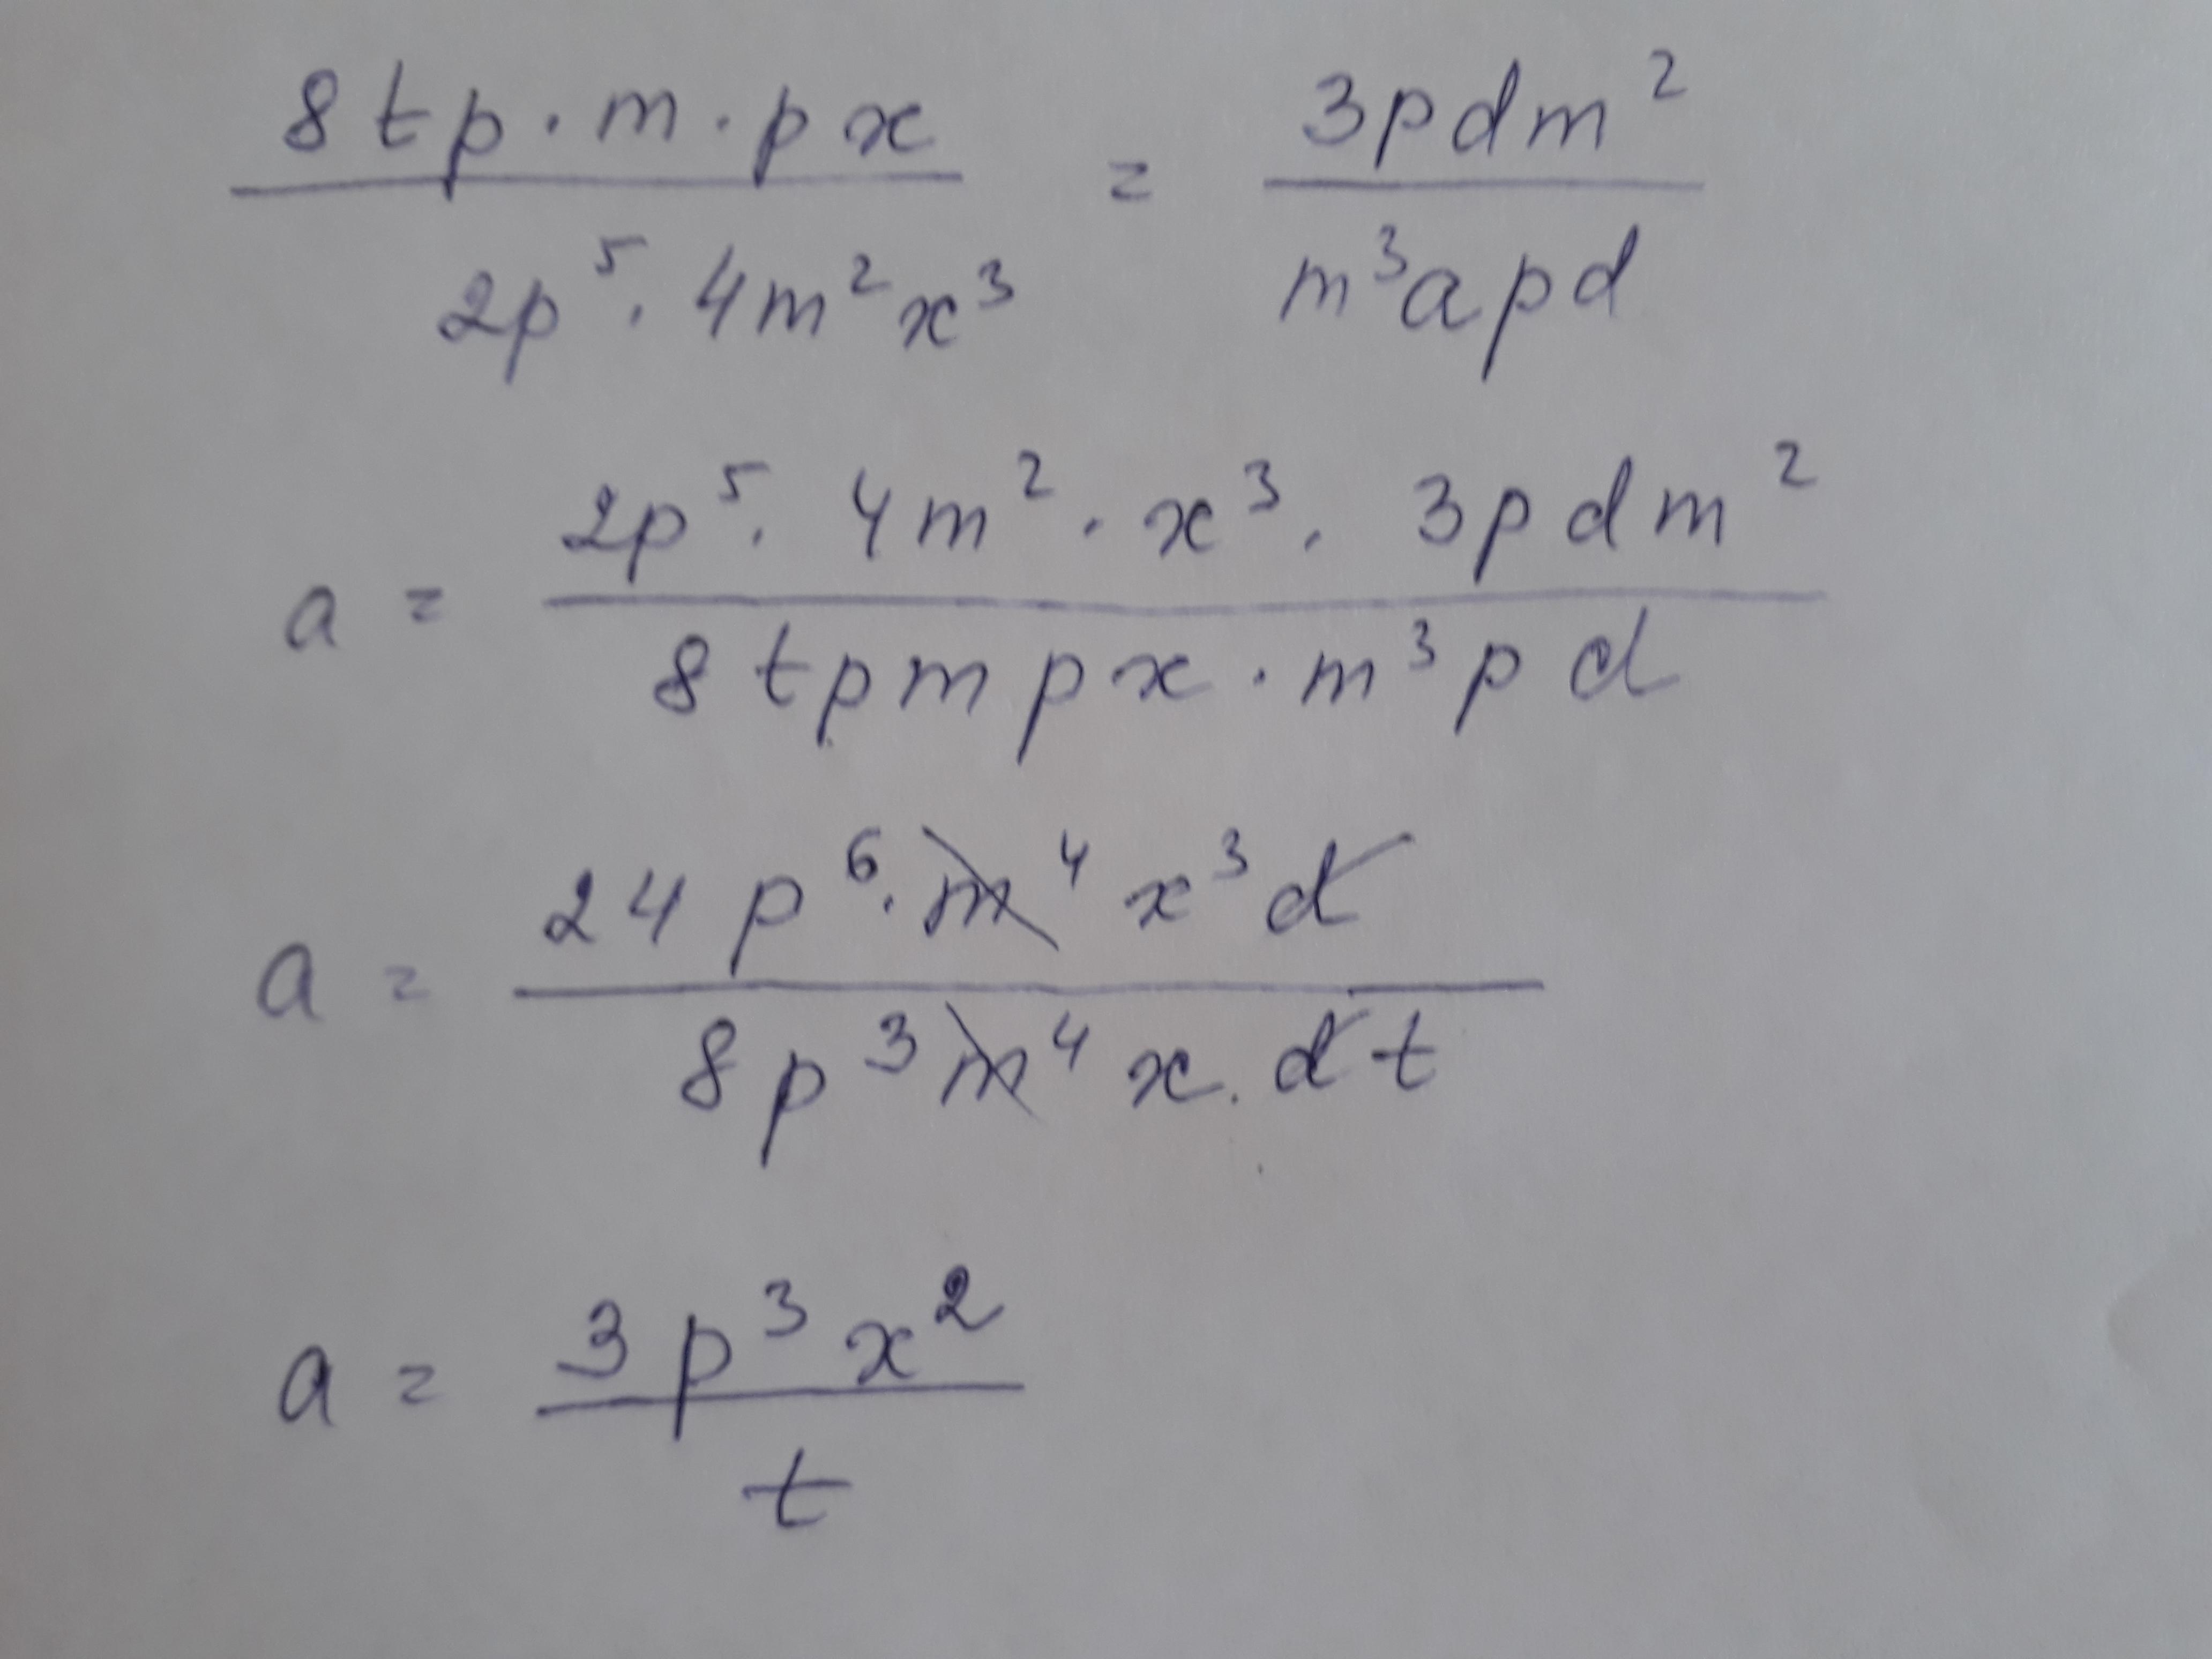 8tp·m·px / 2p⁵·4m²x³ = 3pdm² / m³apd
a = 2p⁵·4m²·x³·3pdm² / 8tpmpx·m³pd
a = 24p⁶·m⁴x³d / 8p³m⁴x·dt
a = 3p³x² / t